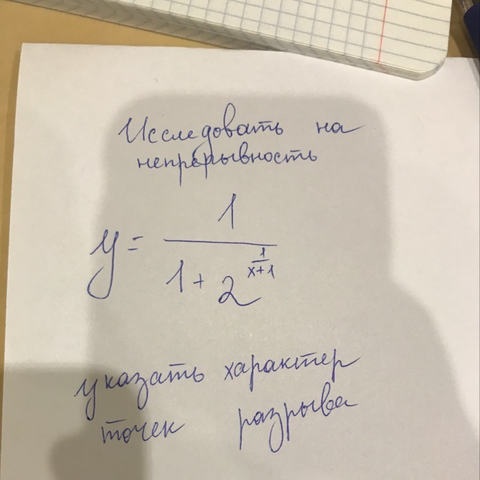 Исследовать на
непрерывность
y = \frac{1}{1 + 2^{\frac{1}{x+1}}}
указать характер
точек разрыва